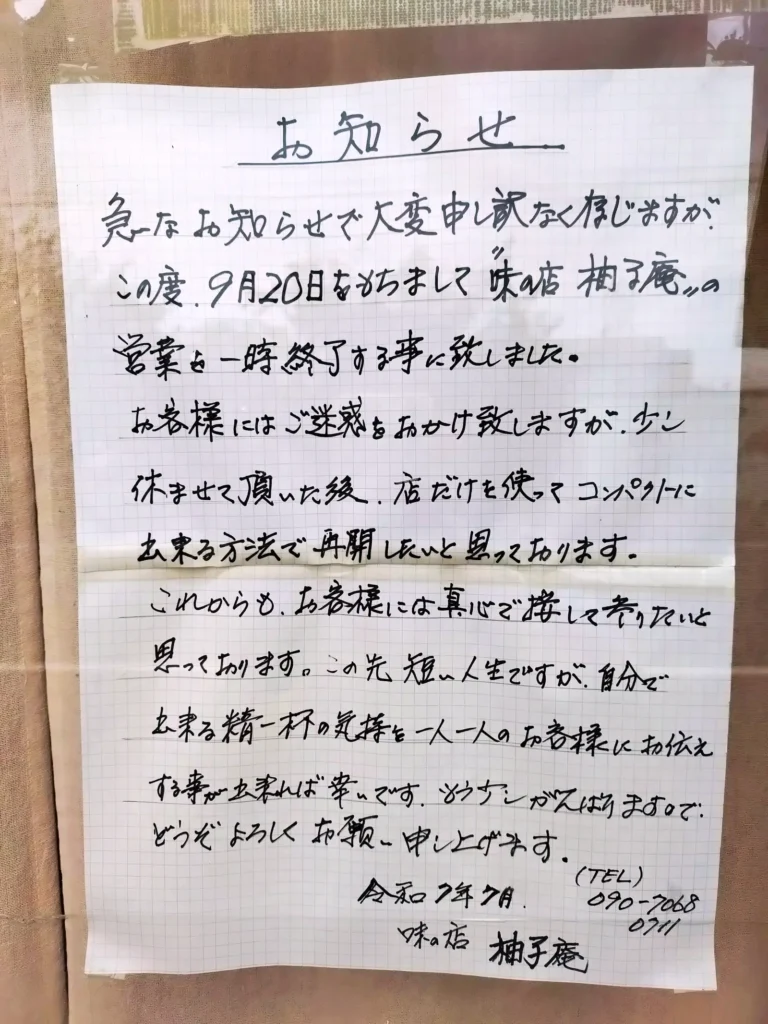 お知らせ
急なお知らせで大変申し訳なく存じますが、
この度、9月20日をもちまして〝味の店 柚子庵〟の
営業を一時終了する事に致しました。
お客様にはご迷惑をおかけ致しますが、少し
休ませて頂いた後、店だけを使ってコンパクトに
出来る方法で再開したいと思っております。
これからも、お客様には真心で接して参りたいと
思っております。この先短い人生ですが、自分で
出来る精一杯の気持を一人一人のお客様にお伝え
する事が出来れば幸いです。もう少しがんばりますので、
どうぞよろしくお願い申し上げます。
令和7年7月.
(TEL)
090-7068
0711
味の店 柚子庵